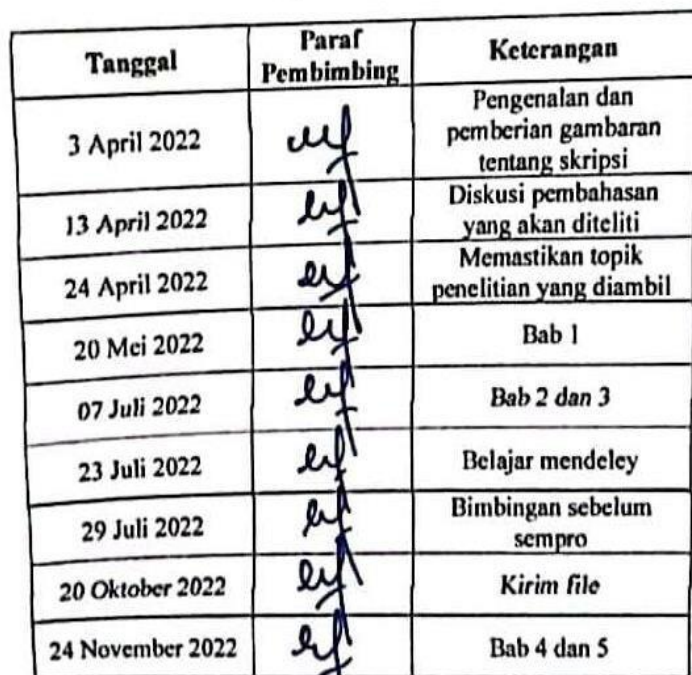 Tanggal
Paraf
Pembimbing
Keterangan
3 April 2022
Pengenalan dan
pemberian gambaran
tentang skripsi
13 April 2022
Diskusi pembahasan
yang akan diteliti
24 April 2022
Memastikan topik
penelitian yang diambil
20 Mei 2022
Bab 1
07 Juli 2022
Bab 2 dan 3
23 Juli 2022
Belajar mendeley
29 Juli 2022
Bimbingan sebelum
sempro
20 Oktober 2022
Kirim file
24 November 2022
Bab 4 dan 5